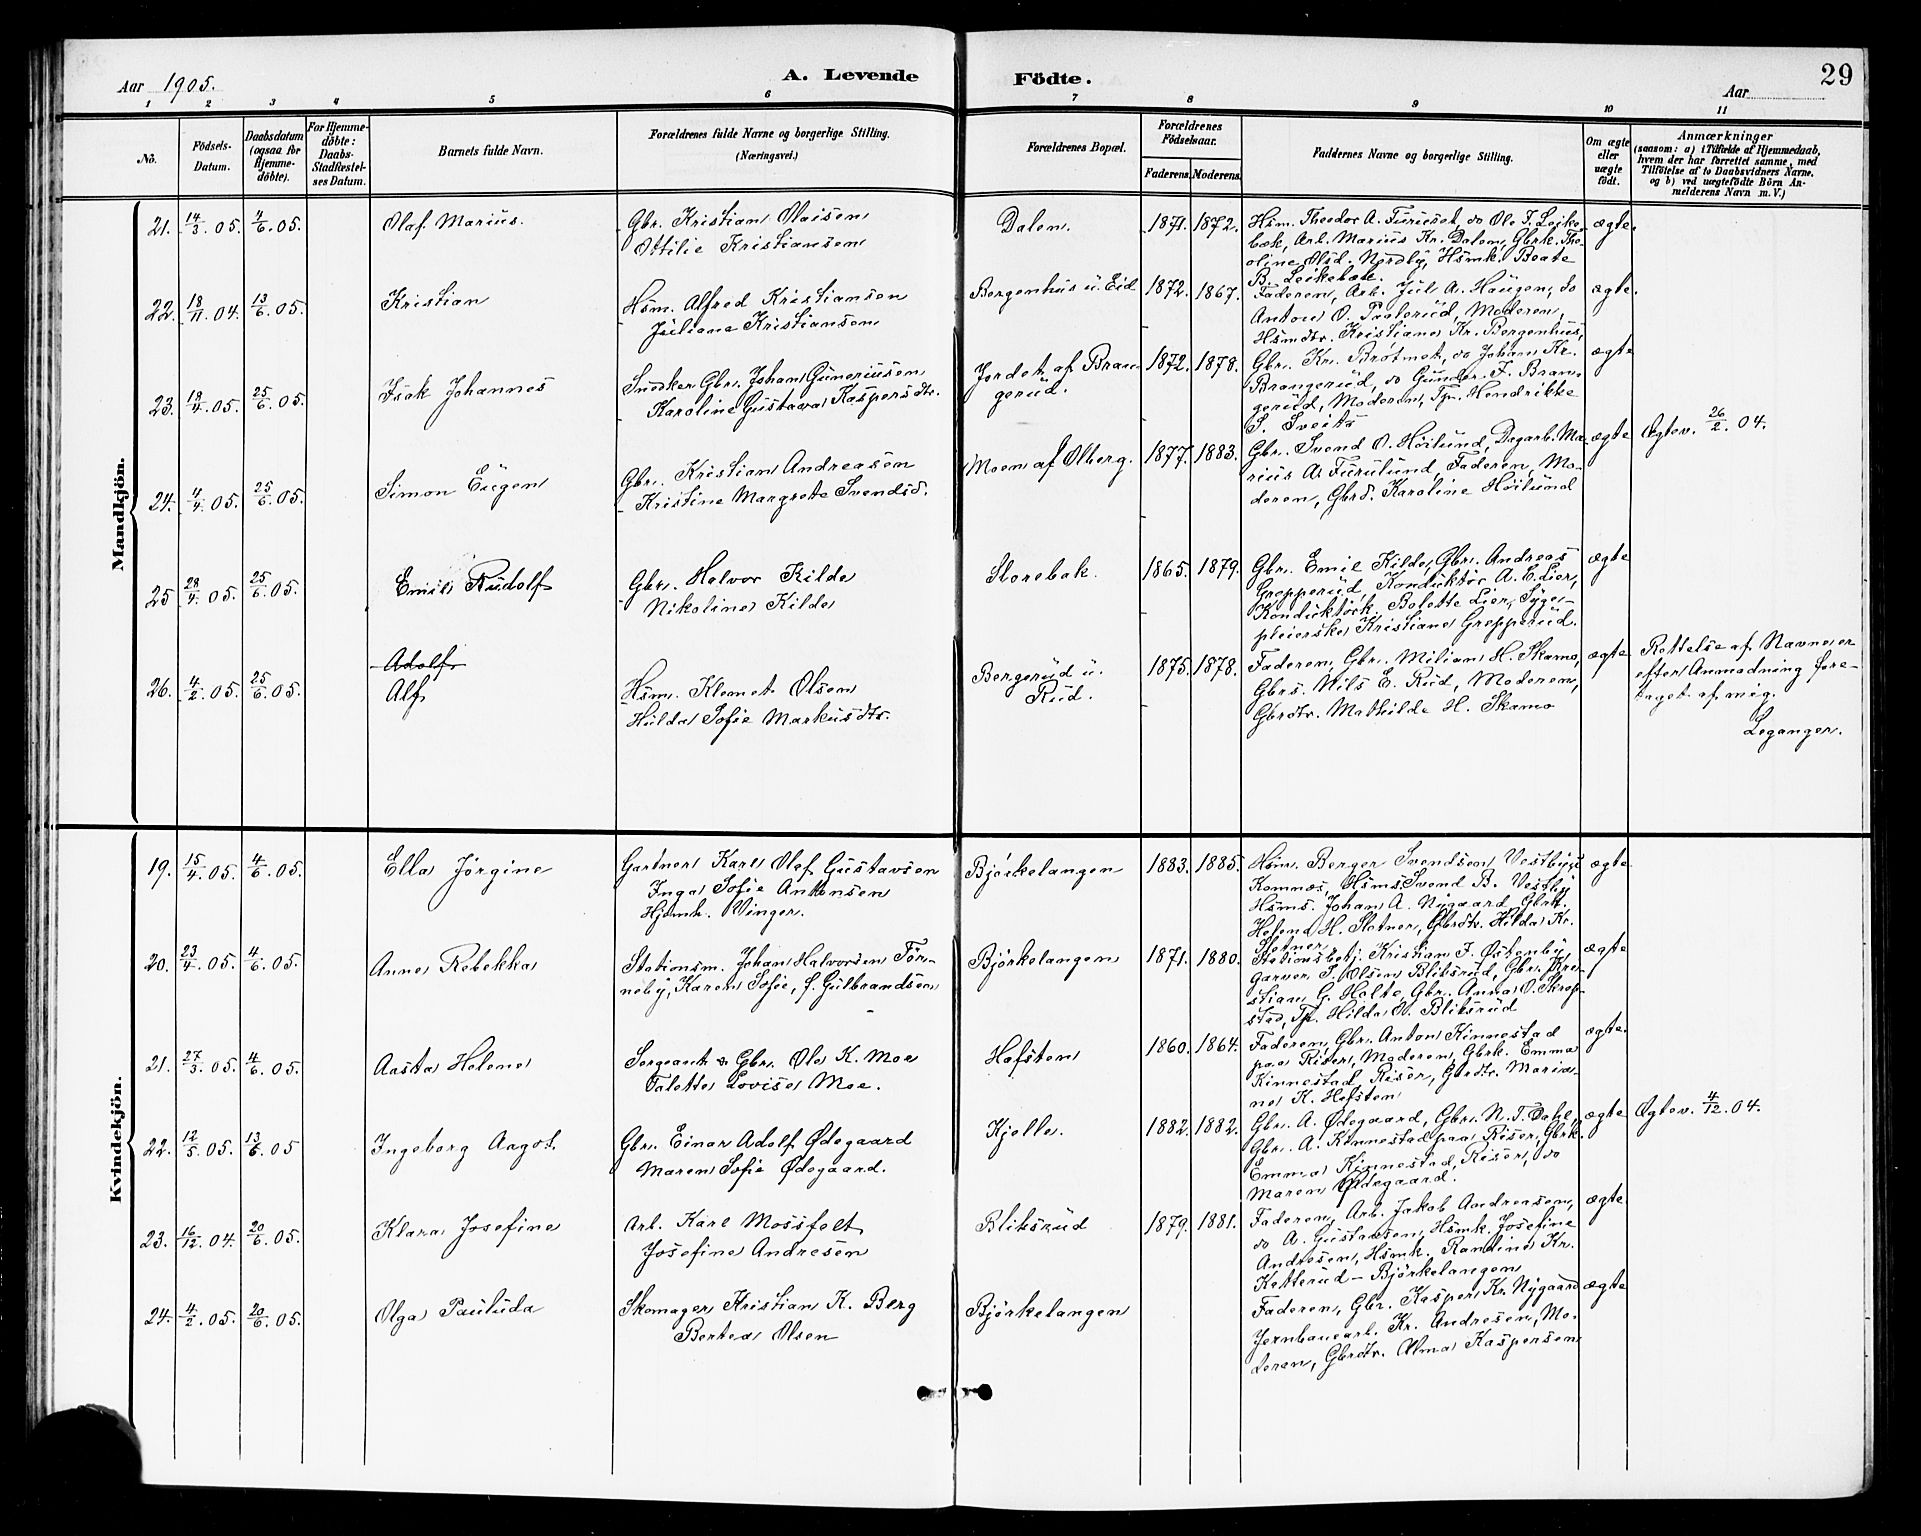 29
Aar 1905.
A. Levende Födte.
Aar
1 2 3 4 5 6 7 8 9 10 11
No.
Födsels-Datum.
Daabsdatum (ogsaa for Hjemme-döbte).
For Hjemme-döbte: Daabs-Stadfæstel-ses Datum.
Barnets fulde Navn.
Forældrenes fulde Navne og borgerlige Stilling.
(Næringsvei.)
Forældrenes Bopæl.
Forældrenes Födselsaar.
Faderens. Moderens.
Faddernes Navne og borgerlige Stilling.
Om ægte eller uægte födt.
Anmærkninger
(saasom: a) i Tilfælde af Hjemmedaab, hvem der har forrettet samme, med Tilföielse af to Daabsvidners Navne, og b) ved uægtefödte Börn An-melderens Navn m. V.)
Mandkjön.
21. 14/3.05. 4/6.05. Olaf Marius. Gbr. Kristian Olaisen
Ottilie Kristiansen
Dalen. 1871. 1872. ægte.
Hsm. Theodor A. Furuset, do Ole J. Leike-
bæk, Arb. Marius Kr. Dalen, Gbrk. Tho-
oline Olsd. Nordby, Hsmk. Beate
B. Leikebæk.
22. 18/11.04. 13/6.05. Kristian Hsm. Alfred Kristiansen
Juliane Kristiansen
Bergenhus u. Eid 1872. 1867. ægte.
Faderen, Arb. Jul A. Haugen, do
Anton O. Paalerud, Moderen,
Hsmdtr. Kristiane Kr. Bergenhus,
23. 18/4.05. 25/6.05. Isak Johannes Snedker Gbr. Johan Guneriusen
Karoline Gustava Kaspersdtr.
Jordet af Bran-
gerud. 1872. 1878. ægte
Gbr. Kr. Brøtmet, do Johan Kr.
Brangerud, do Gunder F. Bran-
gerud, Moderen, Tp. Hendrikke
S. Sveits
24. 4/4.05. 25/6.05. Simon Eugen Gbr. Kristian Andreasen
Kristine Margrete Svendsd.
Moen af Ølberg. 1877. 1883. ægte Ægtev. 26/2.04.
Gbr. Svend O. Høilund, Dagarb. Ma-
rius A. Furulund, Faderen, Mo-
deren, Gbrd. Karoline Høilund
25 28/4.05. 25/6.05. Emil Rudolf Gbr. Halvor Kilde
Nikoline Kilde
Storebak. 1865. 1879. ægte
Gbr. Emil Kilde, Gbr. Andreas
Grepperud, Konduktör A. E. Lier,
Konduktörk. Bolette Lier, Syge-
pleierske Kristiane Grepperud.
26. 4/2.05. 25/6.05. Adolf
Alf Hsm. Klemet Olsen
Hulda Sofie Markusdtr.
Bergerud u.
Rud. 1875. 1878. ægte
Faderen, Gbr. Milian H. Skamo,
Gbrs. Nils E. Rud, Moderen,
Gbrdtr. Mathilde H. Skamo
Rettelse af Navnet er
efter Anmodning fore-
taget af mig.
Leganger.
Kvindekjön.
19. 15/4.05. 4/6.05. Ella Jörgine Gartner Karl Olaf Gustavsen
Inga Sofie Antonsen
Hjemh. Vinger.
Bjørkelangen 1883. 1885. ægte
Hsm. Berger Svendsen Vestby
Komnæs, Hsms. Svend B. Vestby
Hsms. Johan A. Nygaard, Gbrk.
Helena H. Slotner, Gbrdtr. Hilda Kr.
Slotner.
20. 23/4.05. 4/6.05. Anna Rebekka Stationsm. Johan Halvorsen För-
neby, Karen Sofie, f. Gulbrandsen
Bjørkelangen 1871. 1880. ægte
Stationsbetj. Kristian J. Østenby,
Garver J. Olsen Bliksrud, Gbr. Kri-
stian G. Holte, Gbr. Anna O. Skrep-
stad, Tp. Hilda O. Bliksrud
21. 27/3.05. 4/6.05. Aasta Helene Sergeant & Gbr. Ole K. Moe
Talette Lovise Moe.
Hofsten 1860. 1864. ægte.
Faderen, Gbr. Anton Kinnestad
paa Riser, Moderen, Gbrk. Emma
Kinnestad, Riser, Gbrdtr. Maria-
ne K. Hofsten
22. 12/5.05. 13/6.05 Ingeborg Aagot. Gbr. Einar Adolf Ødegaard
Maren Sofie Ødegaard.
Kjelle. 1882. 1882. ægte Ægtev. 4/12.04.
Gbr. A. Ødegaard, Gbr. N. T. Dahl,
Gbr. A. Kinnestad paa Riser, Gbrk.
Emma Kinnestad, Riser, do
Maren Ødegaard.
23. 16/12.04. 20/6.05. Klara Josefine Arb. Karl Mossfelt
Josefine Andresen
Bliksrud 1879. 1881. ægte
Faderen, Arb. Jakob Andreasen,
do A. Gustavsen, Hsmk. Josefine
Andresen, Hsmk. Randine Kr.
Ketterud - Bjørkelangen
24. 4/2.05. 20/6.05. Olga Pauluda Skomager Kristian K. Berg
Bertea Olsen
Bjørkelangen ægte
Faderen, Gbr. Kasper Kr. Nygaard
Jernbanearb. Kr. Andresen, Mo-
deren, Gbrdtr. Alma Kaspersen